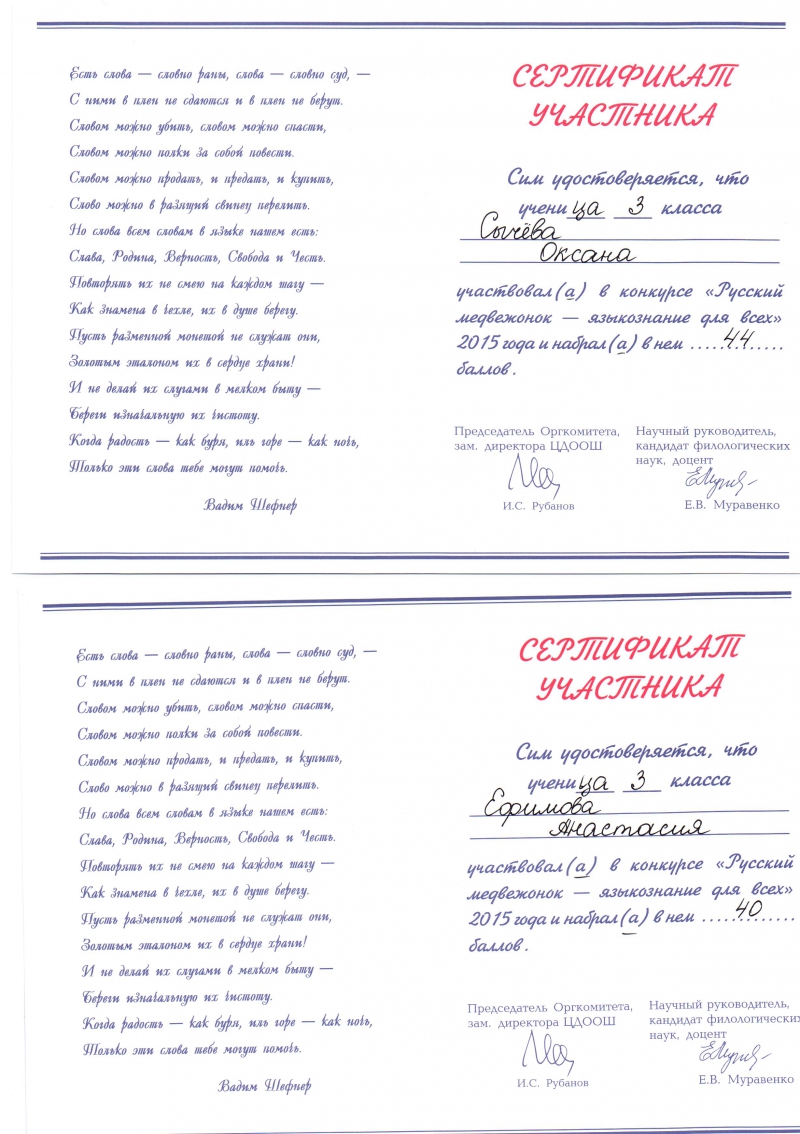 Есть слова — словно раны, слова — словно суд, —
С ними в плен не сдаются и в плен не берут.
Словом можно убить, словом можно спасти,
Словом можно полки за собой повести.
Словом можно продать, и предать, и купить,
Слово можно в разящий свинец перелить.
Но слова всем словам в языке нашем есть:
Слава, Родина, Верность, Свобода и Честь.
Повторять их не смею на каждом шагу —
Как знамена в чехле, их в душе берегу.
Пусть разменной монетой не служат они,
Золотым эталоном их в сердце храни!
И не делай их слугами в мелком быту —
Береги изначальную их чистоту.
Когда радость — как буря, иль горе — как ночь,
Только эти слова тебе могут помочь.
Вадим Шефнер
СЕРТИФИКАТ
УЧАСТНИКА
Сим удостоверяется, что
ученица 3 класса
Сычёва
Оксана
участвовал(а) в конкурсе «Русский
медвежонок — языкознание для всех»
2015 года и набрал(а) в нем ....44....
баллов.
Председатель Оргкомитета,
зам. директора ЦДООШ
И.С. Рубанов
Научный руководитель,
кандидат филологических
наук, доцент
Е.В. Муравенко
Есть слова — словно раны, слова — словно суд, —
С ними в плен не сдаются и в плен не берут.
Словом можно убить, словом можно спасти,
Словом можно полки за собой повести.
Словом можно продать, и предать, и купить,
Слово можно в разящий свинец перелить.
Но слова всем словам в языке нашем есть:
Слава, Родина, Верность, Свобода и Честь.
Повторять их не смею на каждом шагу —
Как знамена в чехле, их в душе берегу.
Пусть разменной монетой не служат они,
Золотым эталоном их в сердце храни!
И не делай их слугами в мелком быту —
Береги изначальную их чистоту.
Когда радость — как буря, иль горе — как ночь,
Только эти слова тебе могут помочь.
Вадим Шефнер
СЕРТИФИКАТ
УЧАСТНИКА
Сим удостоверяется, что
ученица 3 класса
Ефимова
Анастасия
участвовал(а) в конкурсе «Русский
медвежонок — языкознание для всех»
2015 года и набрал(а) в нем ....40....
баллов.
Председатель Оргкомитета,
зам. директора ЦДООШ
И.С. Рубанов
Научный руководитель,
кандидат филологических
наук, доцент
Е.В. Муравенко